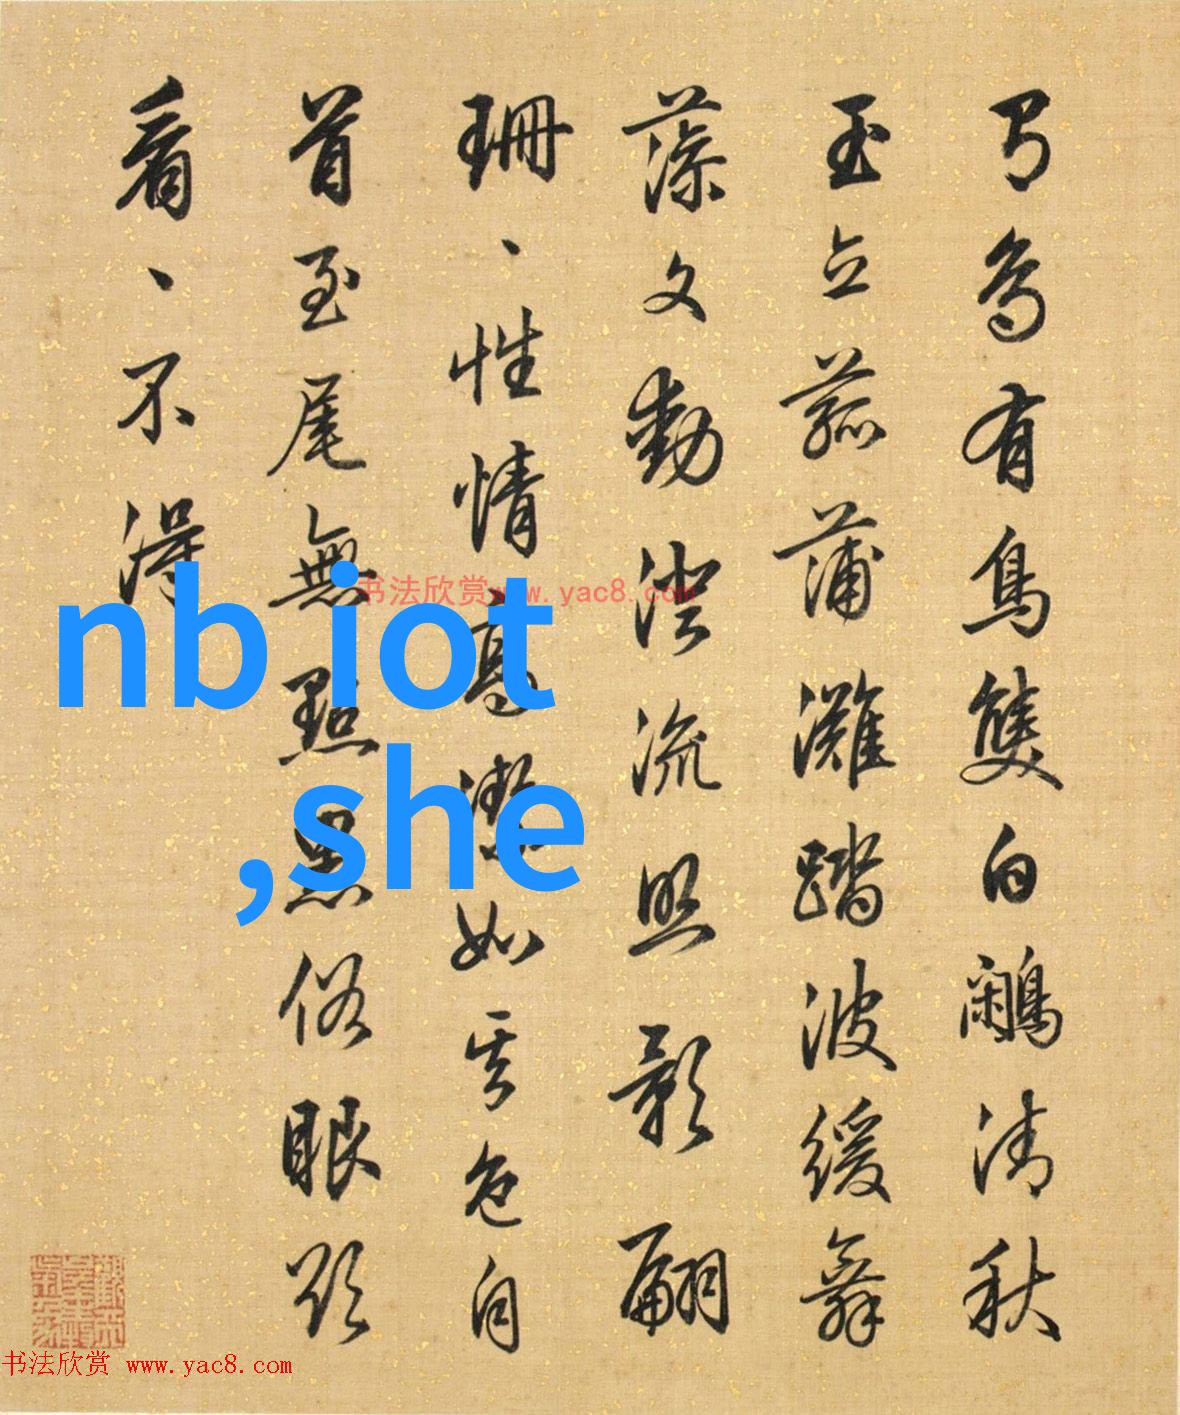 有鳥有鳥雙白鷳清秋
玉立菰蒲灘踏波緩舞
藻文動澄流照影翩
珊、性情高潔如其色自
首至尾無點黑俗眼欲
看、不得
书法欣赏www.yac8.com
nb iot
,she
书法欣赏 www.yac8.com